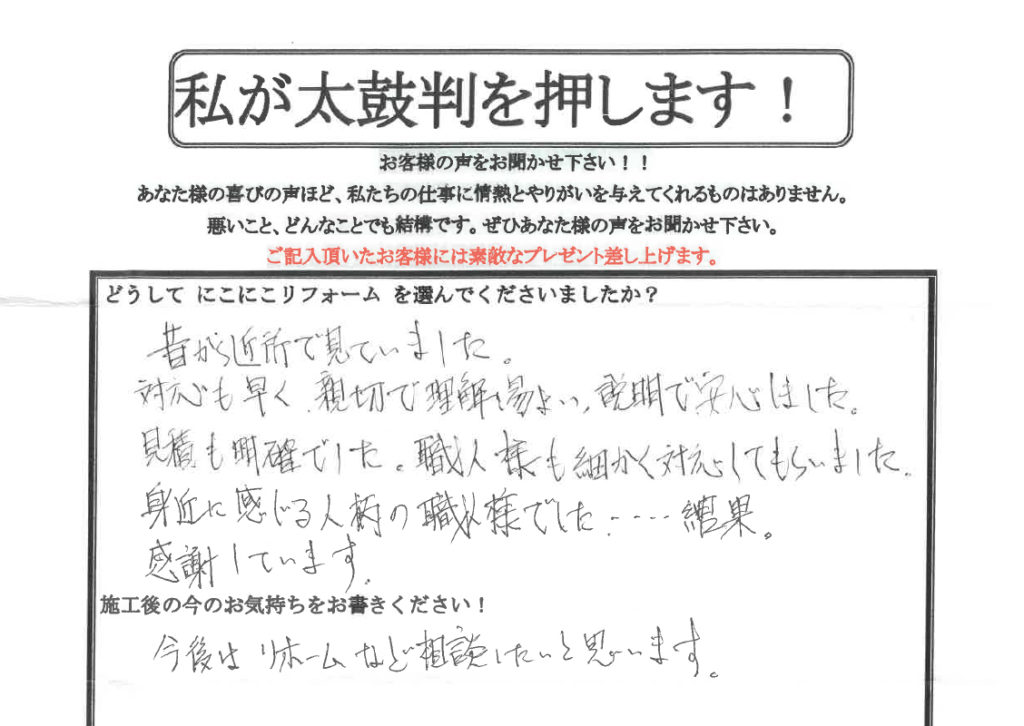 私が太鼓判を押します！
お客様の声をお聞かせ下さい！！
あなた様の喜びの声ほど、私たちの仕事に情熱とやりがいを与えてくれるものはありません。
悪いこと、どんなことでも結構です。ぜひあなた様の声をお聞かせ下さい。
ご記入頂いたお客様には素敵なプレゼント差し上げます。
どうして にこにこリフォーム を選んでくださいましたか？
昔から近所で見ていました。
対応も早く、親切で理解し易よい、説明で安心しました。
見積も明確でした。職人様も細かく対応してもらいました。
身近に感じる人柄の職人様でした‥‥‥結果。
感謝しています。
施工後の今のお気持ちをお書きください！
今後は リホーム など相談したいと思います。